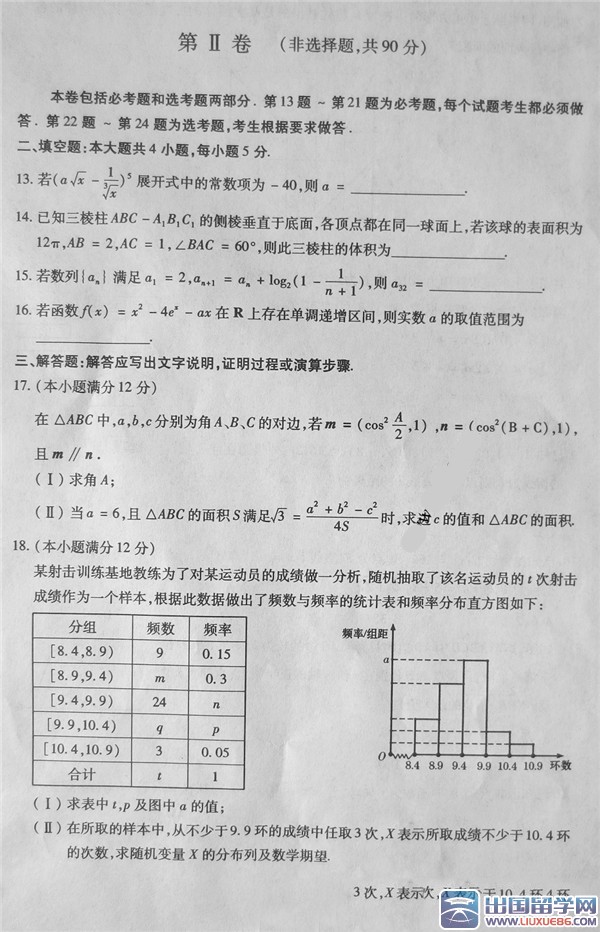 第 Ⅱ 卷 (非选择题,共90分)
本卷包括必考题和选考题两部分．第13题 ~ 第21题为必考题,每个试题考生都必须做
答．第22题 ~ 第24题为选考题,考生根据要求做答．
二、填空题:本大题共4小题,每小题5分.
13. 若(a√x - 1/∛x)⁵ 展开式中的常数项为 -40,则 a = ____________.
14. 已知三棱柱 ABC - A₁B₁C₁ 的侧棱垂直于底面,各顶点都在同一球面上,若该球的表面积为
12π,AB = 2,AC = 1,∠BAC = 60°,则此三棱柱的体积为____________.
15. 若数列{aₙ} 满足 a₁ = 2,aₙ₊₁ = aₙ + log₂(1 - 1/(n + 1)),则 a₃₂ = ____________.
16. 若函数 f(x) = x² - 4eˣ - ax 在 R 上存在单调递增区间,则实数 a 的取值范围为
____________.
三、解答题:解答应写出文字说明,证明过程或演算步骤.
17. (本小题满分12分)
在 △ABC 中,a,b,c 分别为角 A、B、C 的对边,若 m = (cos² A/2,1) ,n = (cos²(B + C),1),
且 m ∥ n．
(Ⅰ) 求角 A;
(Ⅱ) 当 a = 6,且 △ABC 的面积 S 满足√3 = (a² + b² - c²)/4S 时,求边 c 的值和 △ABC 的面积.
18. (本小题满分12分)
某射击训练基地教练为了对某运动员的成绩做一分析,随机抽取了该名运动员的 t 次射击
成绩作为一个样本,根据此数据做出了频数与频率的统计表和频率分布直方图如下:
分组 频数 频率
[8.4,8.9) 9 0.15
[8.9,9.4) m 0.3
[9.4,9.9) 24 n
[9.9,10.4) q p
[10.4,10.9) 3 0.05
合计 t 1
频率/组距
a
O 8.4 8.9 9.4 9.9 10.4 10.9 环数
(Ⅰ) 求表中 t,p 及图中 a 的值;
(Ⅱ) 在所取的样本中,从不少于9.9环的成绩中任取3次,X 表示所取成绩不少于10.4环
的次数,求随机变量 X 的分布列及数学期望.
3次,X表示次,
出国留学网
WWW.LIUXUE86.COM